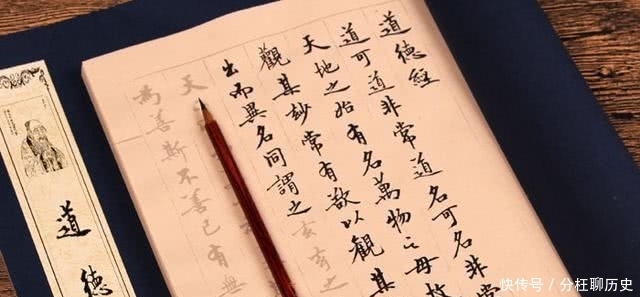 道德經
道可道非常道名可名非常
天地之始有名萬物之母故
觀其妙常有欲以觀其
出而異名同謂之玄玄之
天
為善斯不善已有無
道德
快传号 / 分枉聊历史